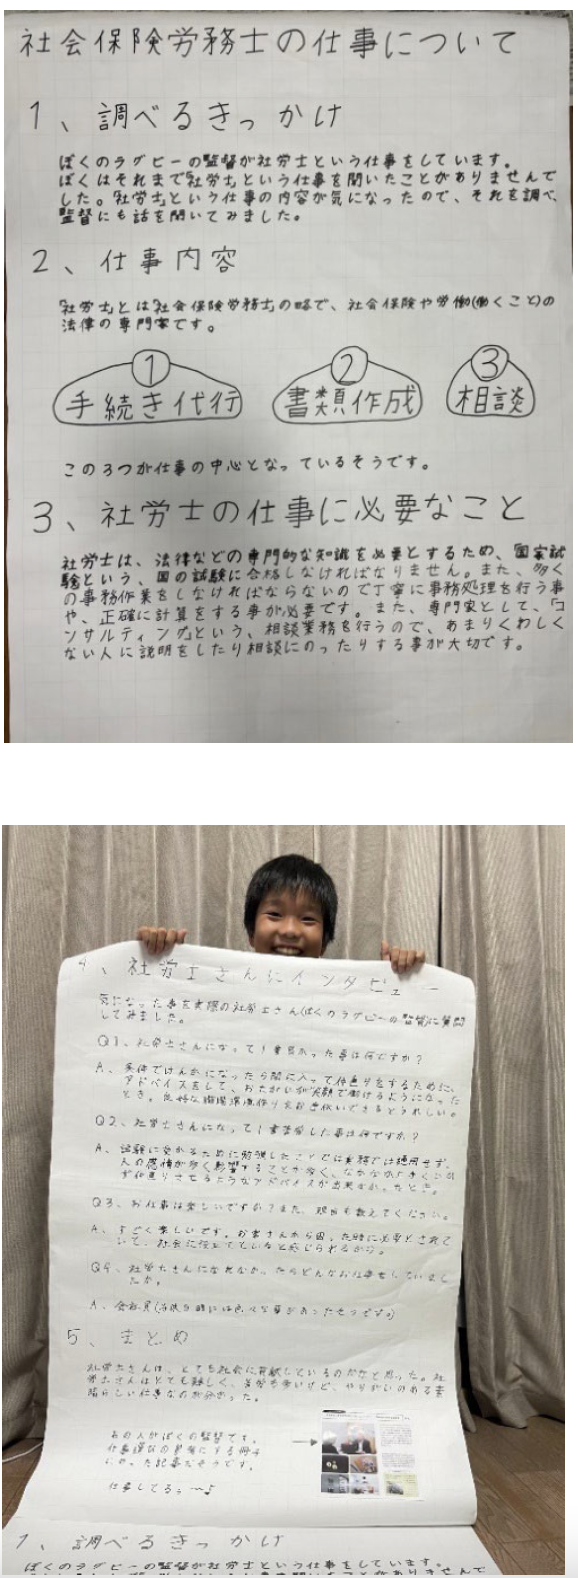 社会保険労務士の仕事について
1、調べるきっかけ
ぼくのラグビーの監督が社労士という仕事をしています。
ぼくはそれまで「社労士」という仕事を聞いたことがありませんで
した。「社労士」という仕事の内容が気になったので、それを調べ、
監督にも話を聞いてみました。
2、仕事内容
「社労士」とは「社会保険労務士」の略で、社会保険や労働(働くこと)の
法律の専門家です。
① ② ③
手続き代行 書類作成 相談
この3つが仕事の中心となっているそうです。
3、社労士の仕事に必要なこと
社労士は、法律などの専門的な知識を必要とするため、国家試
験という、国の試験に合格しなければなりません。また、多く
の事務作業をしなければならないので丁寧に事務処理を行う事
や、正確に計算をする事が必要です。また、専門家として、「コ
ンサルティング」という、相談業務を行うので、あまりくわしく
ない人に説明をしたり相談にのったりする事が大切です。
4、社労士さんにインタビュー
気になった事を実際の社労士さん(ぼくのラグビーの監督)に質問
してみました。
Q1、社労士さんになって1番良かった事は何ですか?
A、
アドバイスをして、おたがいが笑顔で働けるようになった
とき。良好な職場環境作りをお手伝いできるとうれしい。
Q2、社労士さんになって1番苦労した事は何ですか?
A、試験に受かるために勉強したことでは実務では通用せず、
人の感情が多く影響することが多く、なかなか
アドバイスが出来なかったとき。
Q3、お仕事は楽しいですか?また、理由も教えてください。
A、すごく楽しいです。お客さんから困った時に必要とされて
いて、社会に役立てていると感じられるから。
Q4、社労士さんになれなかったらどんなお仕事をしていまし
たか。
A、会社員
5、まとめ
社労士さんは、とても社会に貢献しているのだなと思った。社
労士さんはとても難しく、苦労も多いけど、やりがいのある素
晴らしい仕事なのが分かった。
あの人がぼくの監督です。
仕事選びの参考にする冊子
に
記事だそうです。
仕事してるぅ〜♪
1、調べるきっかけ
ぼくのラグビーの監督が社労士という仕事をしています。